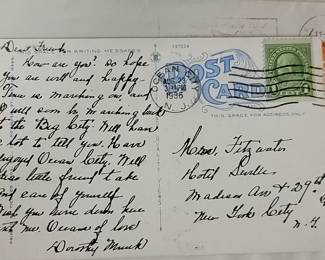 Dear Friend:
How are you? So hope
you are well and happy.
Time is marching on, and
I will soon be marching back
to the Big City. Will have
lot to tell you. Have
enjoyed Ocean City. Well
little friend take
care of yourself
Wish you were down here
with me. Oceans of love
Dorothy
WRITING MESSAGES
127024
OCEAN CITY
1936
N.J.
POST
CARD
THIS SPACE FOR ADDRESS ONLY
Miss Fitzwater
Hotel Seville
Madison Ave + 29 St
New York City
N.Y.